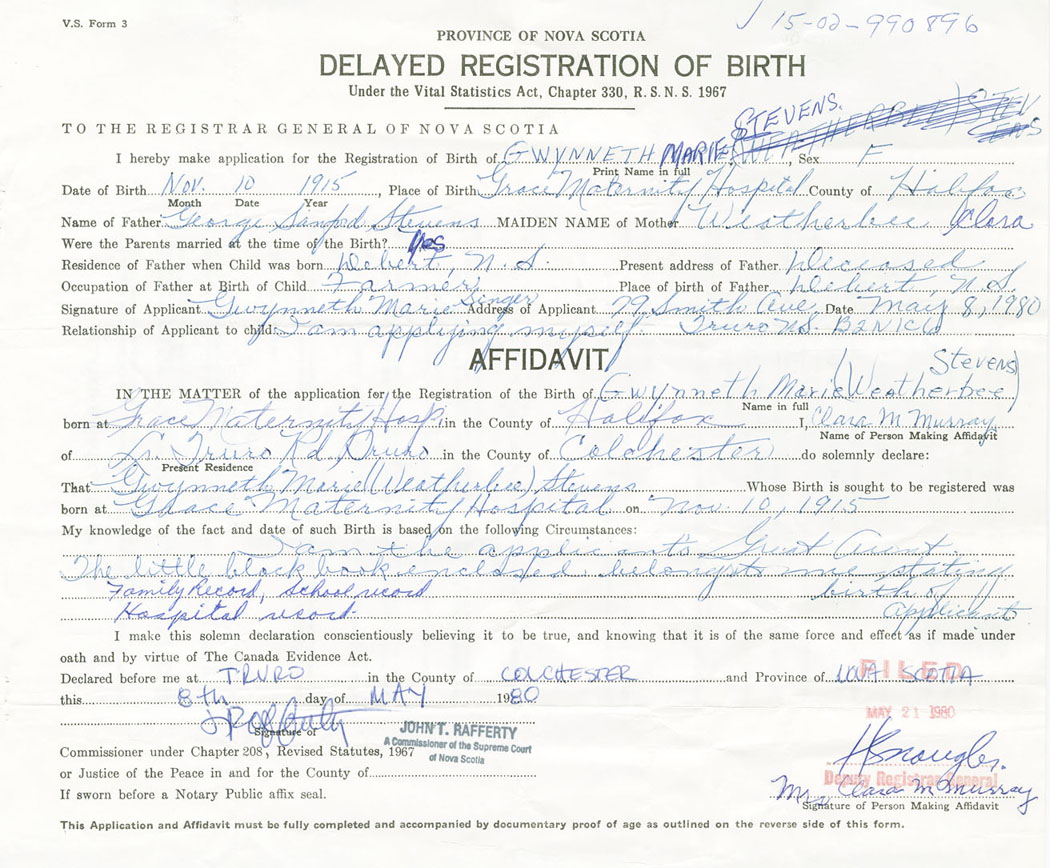 V.S. Form 3
15-02-990896
PROVINCE OF NOVA SCOTIA
DELAYED REGISTRATION OF BIRTH
Under the Vital Statistics Act, Chapter 330, R.S.N.S. 1967
STEVENS.
TO THE REGISTRAR GENERAL OF NOVA SCOTIA
I hereby make application for the Registration of Birth of GWYNNETH MARIE, Sex F
Print Name in full
Date of Birth Nov. 10 1915, Place of Birth Grace Maternity Hospital County of Halifax
Month Date Year
Name of Father George Sanford Stevens MAIDEN NAME of Mother Weatherbee Clara
Were the Parents married at the time of the Birth? Yes
Residence of Father when Child was born Debert, N.S. Present address of Father Deceased
Occupation of Father at Birth of Child Farmer Place of birth of Father Debert, N.S.
Signature of Applicant Gwynneth Marie Singer Address of Applicant 79 Smith Ave, Date May 8, 1980
Relationship of Applicant to child: I am applying myself Truro N.S. B2N1C6
AFFIDAVIT
IN THE MATTER of the application for the Registration of the Birth of Gwynneth Marie (Weatherbee) Stevens
Name in full
born at Grace Maternity Hosp. in the County of Halifax I, Clara M Murray
Name of Person Making Affidavit
of Lr. Truro Rd, Truro in the County of Colchester do solemnly declare:
Present Residence
That Gwynneth Marie (Weatherbee) Stevens Whose Birth is sought to be registered was
born at Grace Maternity Hospital on Nov. 10, 1915
My knowledge of the fact and date of such Birth is based on the following Circumstances:
I am the applicants Great Aunt
The little black book enclosed belongs to me stating
Family Record, School record birth of
Hospital record. applicant
I make this solemn declaration conscientiously believing it to be true, and knowing that it is of the same force and effect as if made under
oath and by virtue of The Canada Evidence Act.
Declared before me at TRURO in the County of COLCHESTER and Province of NOVA SCOTIA
FILED
this 8th day of MAY 1980
MAY 21 1980
Signature of
JOHN T. RAFFERTY
A Commissioner of the Supreme Court
of Nova Scotia
Commissioner under Chapter 208, Revised Statutes, 1967
or Justice of the Peace in and for the County of
Deputy Registrar General
If sworn before a Notary Public affix seal.
Mrs Clara M Murray
Signature of Person Making Affidavit
This Application and Affidavit must be fully completed and accompanied by documentary proof of age as outlined on the reverse side of this form.